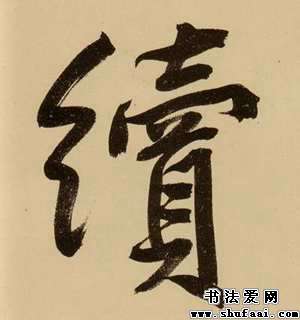 續
书法爱网
www.shufaai.com